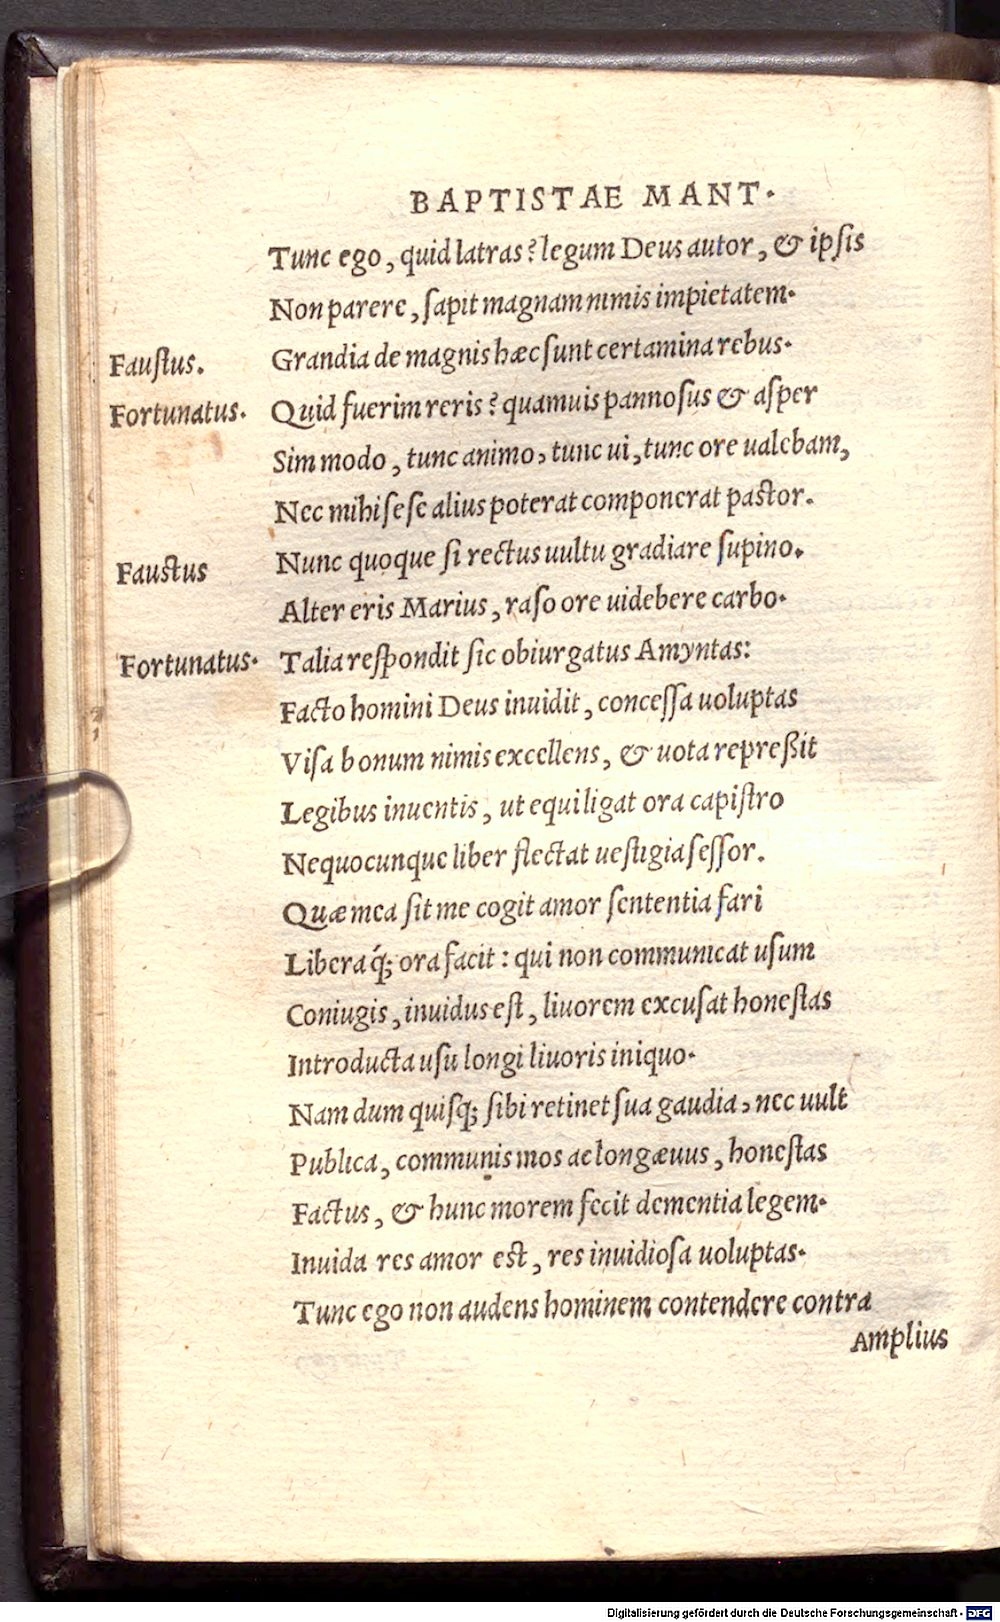 BAPTISTAE MANT.
Tunc ego, quid latras? legum Deus autor, & ipsis
Non parere, sapit magnam nimis impietatem.
Faustus. Grandia de magnis hæc sunt certamina rebus.
Fortunatus. Quid fuerim reris? quamuis pannosus & asper
Sim modo, tunc animo, tunc ui, tunc ore ualebam,
Nec mihi sese alius poterat componerat pastor.
Faustus Nunc quoque si rectus uultu gradiare supino.
Alter eris Marius, raso ore uidebere carbo.
Fortunatus. Talia respondit sic obiurgatus Amyntas:
Facto homini Deus inuidit, concessa uoluptas
Visa bonum nimis excellens, & uota repreßit
Legibus inuentis, ut equi ligat ora capistro
Ne quocunque liber flectat uestigia sessor.
Quæ mea sit me cogit amor sententia fari
Libera q́; ora facit: qui non communicat usum
Coniugis, inuidus est, liuorem excusat honestas
Introducta usu longi liuoris iniquo.
Nam dum quisq; sibi retinet sua gaudia, nec uult
Publica, communis mos ac longæuus, honestas
Factus, & hunc morem fecit dementia legem.
Inuida res amor est, res inuidiosa uoluptas.
Tunc ego non audens hominem contendere contra
Amplius
Digitalisierung gefördert durch die Deutsche Forschungsgemeinschaft - DFG